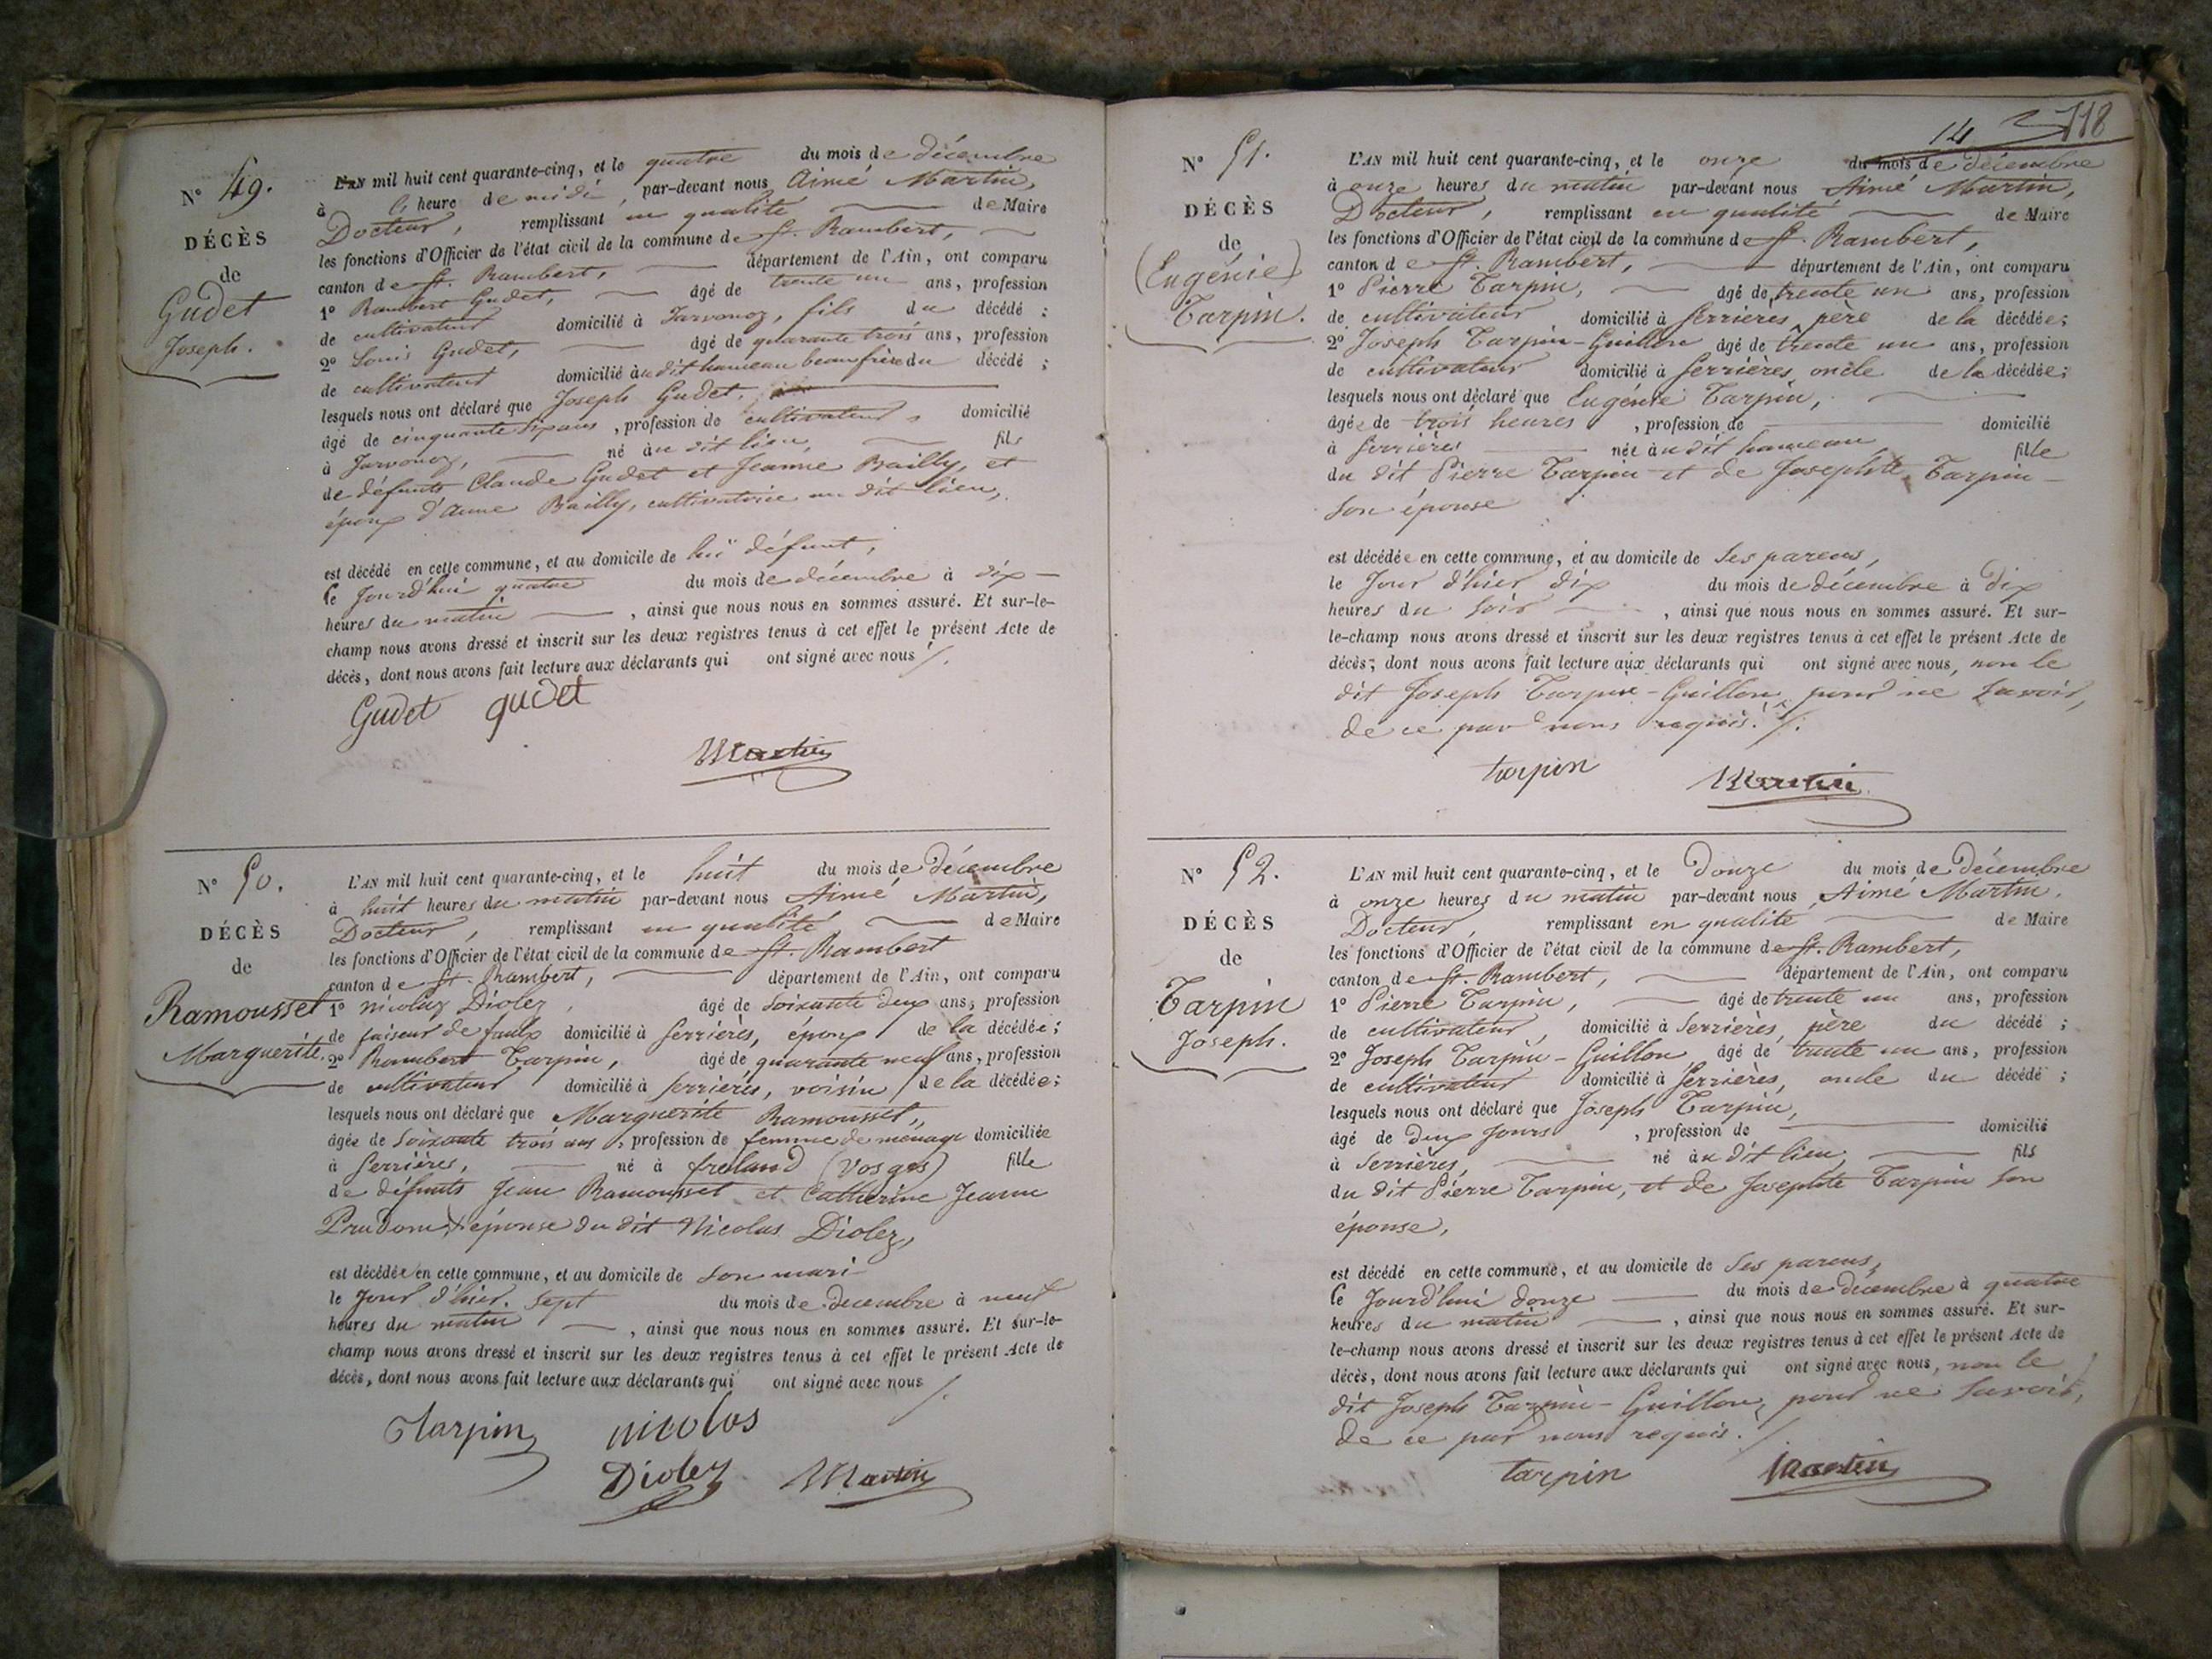 N° 49.
DÉCÈS
de
Gudet
Joseph.
L'AN mil huit cent quarante-cinq, et le quatre du mois de décembre
à heure de midi, par-devant nous Aimé Martin,
Docteur, remplissant en qualité de Maire
les fonctions d'Officier de l'état civil de la commune de St. Rambert,
canton de St. Rambert, département de l'Ain, ont comparu
1° Rambert Gudet, âgé de trente un ans, profession
de cultivateur domicilié à Javronoz, fils du décédé ;
2° Louis Gudet, âgé de quarante trois ans, profession
de cultivateur domicilié audit hameau beau frère du décédé ;
lesquels nous ont déclaré que Joseph Gudet,
âgé de cinquante six ans, profession de cultivateur, domicilié
à Javronoz, né au dit lieu, fils
de défunts Claude Gudet et Jeanne Bailly, et
époux d'Anne Bailly, cultivatrice au dit lieu,
est décédé en cette commune, et au domicile de lui défunt,
le Jourd'hui quatre du mois de décembre à dix
heures du matin, ainsi que nous nous en sommes assuré. Et sur-le-
champ nous avons dressé et inscrit sur les deux registres tenus à cet effet le présent Acte de
décès, dont nous avons fait lecture aux déclarants qui ont signé avec nous /.
Gudet gudet
Martin
N° 50.
DÉCÈS
de
Ramousset
Marguerite.
L'AN mil huit cent quarante-cinq, et le huit du mois de Décembre
à huit heures du matin par-devant nous Aimé Martin,
Docteur, remplissant en qualité de Maire
les fonctions d'Officier de l'état civil de la commune de St. Rambert
canton de St. Rambert, département de l'Ain, ont comparu
1° Nicolas Diolez, âgé de soixante deux ans, profession
de faiseur de faulx domicilié à Serrières, époux de la décédée ;
2° Rambert Tarpin, âgé de quarante neuf ans, profession
de cultivateur domicilié à Serrières, voisin de la décédée ;
lesquels nous ont déclaré que Marguerite Ramousset,
âgée de soixante trois ans, profession de femme de ménage domiciliée
à Serrières, né à freland (Vosges) fille
de défunts Jean Ramousset et Catherine Jeanne
Prudom, épouse du dit Nicolas Diolez,
est décédée en cette commune, et au domicile de son mari
le Jour d'hier. Sept du mois de décembre à neuf
heures du matin, ainsi que nous nous en sommes assuré. Et sur-le-
champ nous avons dressé et inscrit sur les deux registres tenus à cet effet le présent Acte de
décès, dont nous avons fait lecture aux déclarants qui ont signé avec nous /.
Tarpin nicolas
Diolez Martin
14 118
N° 51.
DÉCÈS
de
(Eugénie)
Tarpin.
L'AN mil huit cent quarante-cinq, et le onze du mois de décembre
à onze heures du matin par-devant nous Aimé Martin,
Docteur, remplissant en qualité de Maire
les fonctions d'Officier de l'état civil de la commune de St. Rambert,
canton de St. Rambert, département de l'Ain, ont comparu
1° Pierre Tarpin, âgé de trente un ans, profession
de cultivateur domicilié à Serrières père de la décédée ;
2° Joseph Tarpin-Guillon âgé de trente un ans, profession
de cultivateur domicilié à Serrières, oncle de la décédée ;
lesquels nous ont déclaré que Eugénie Tarpin,
âgée de trois heures, profession de domicilié
à Serrières née audit hameau, fille
du dit Pierre Tarpin et de Josephte Tarpin
son épouse
est décédée en cette commune, et au domicile de ses parens,
le Jour d'hier dix du mois de décembre à dix
heures du soir, ainsi que nous nous en sommes assuré. Et sur-
le-champ nous avons dressé et inscrit sur les deux registres tenus à cet effet le présent Acte de
décès ; dont nous avons fait lecture aux déclarants qui ont signé avec nous, non le
dit Joseph Tarpin-Guillon, pour ne savoir,
de ce par nous requis. /.
tarpin Martin
N° 52.
DÉCÈS
de
Tarpin
Joseph.
L'AN mil huit cent quarante-cinq, et le Douze du mois de Décembre
à onze heures du matin par-devant nous Aimé Martin,
Docteur, remplissant en qualité de Maire
les fonctions d'Officier de l'état civil de la commune de St. Rambert,
canton de St. Rambert, département de l'Ain, ont comparu
1° Pierre Tarpin, âgé de trente un ans, profession
de cultivateur, domicilié à Serrières, père du décédé ;
2° Joseph Tarpin-Guillon âgé de trente un ans, profession
de cultivateur domicilié à Serrières, oncle du décédé ;
lesquels nous ont déclaré que Joseph Tarpin,
âgé de deux Jours, profession de domicilié
à Serrières, né au dit lieu, fils
du dit Pierre Tarpin, et de Josephte Tarpin son
épouse,
est décédé en cette commune, et au domicile de ses parens,
le Jourd'hui douze du mois de décembre à quatre
heures du matin, ainsi que nous nous en sommes assuré. Et sur-
le-champ nous avons dressé et inscrit sur les deux registres tenus à cet effet le présent Acte de
décès, dont nous avons fait lecture aux déclarants qui ont signé avec nous, non le
dit Joseph Tarpin-Guillon, pour ne savoir,
de ce par nous requis. /
tarpin Martin